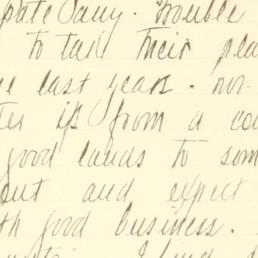 pate any. Trouble
to take their pla
e last year. nor
ter is from a co
good lands to som
out and expect
th good business.
I find